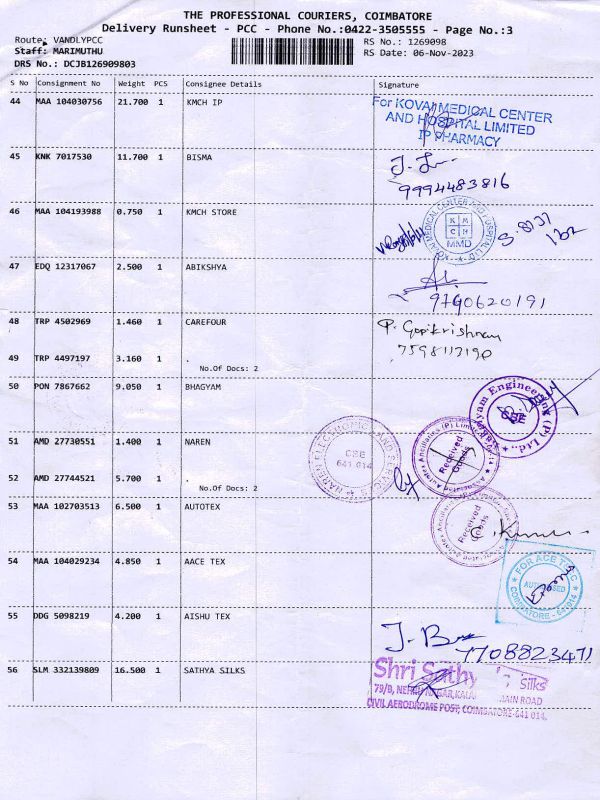 THE PROFESSIONAL COURIERS, COIMBATORE
Delivery Runsheet - PCC - Phone No.:0422-3505555 - Page No.:3
Route: VANDLYPCC
RS No.: 1269098
Staff: MARIMUTHU
RS Date: 06-Nov-2023
DRS No.: DCJB126909803
S No Consignment No Weight PCS Consignee Details Signature
44 MAA 104030756 21.700 1 KMCH IP
For KOVAI MEDICAL CENTER
AND HOSPITAL LIMITED
IP PHARMACY
45 KNK 7017530 11.700 1 BISMA
9994483816
46 MAA 104193988 0.750 1 KMCH STORE
KOVAI MEDICAL CENTER AND HOSPITAL LTD.
K M
C H
MMD
47 EDQ 12317067 2.500 1 ABIKSHYA
9790620191
48 TRP 4502969 1.460 1 CAREFOUR
P. Gopikrishnan
7598113190
49 TRP 4497197 3.160 1 .
No.Of Docs: 2
50 PON 7867662 9.050 1 BHAGYAM
Engineering (P) Ltd.,
CBE
51 AMD 27730551 1.400 1 NAREN
CBE
641 014
Received
Goods
52 AMD 27744521 5.700 1 .
No.Of Docs: 2
53 MAA 102703513 6.500 1 AUTOTEX
Received
Goods
54 MAA 104029234 4.850 1 AACE TEX
FOR ACE TEC
AUTHORISED
COIMBATORE - 641014
55 DDG 5098219 4.200 1 AISHU TEX
7708823471
56 SLM 332139809 16.500 1 SATHYA SILKS
Shri Sathy Silks
79/B, MAIN ROAD
CIVIL AERODROME POST, COIMBATORE-641 014.